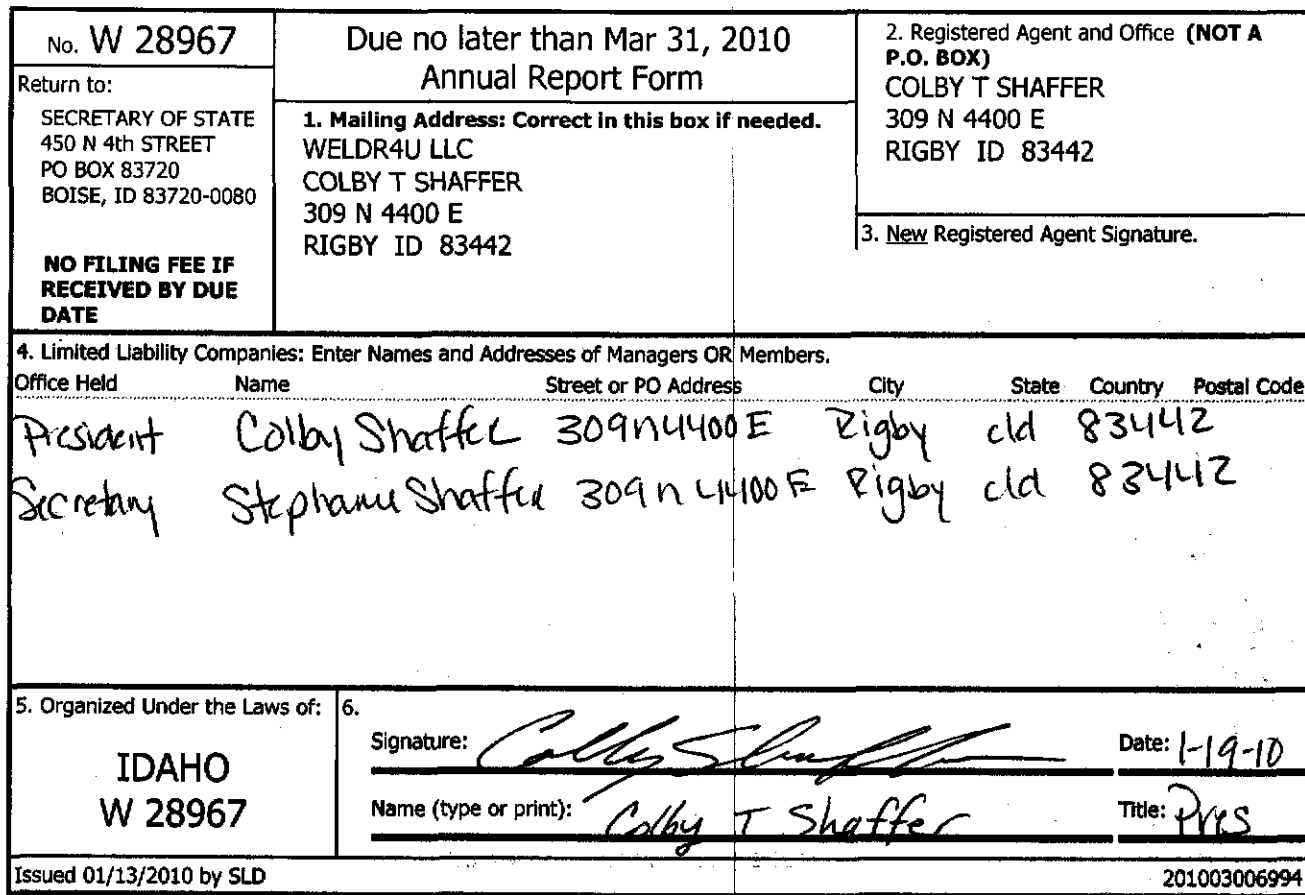 No. W 28967
Return to:
SECRETARY OF STATE
450 N 4th STREET
PO BOX 83720
BOISE, ID 83720-0080
NO FILING FEE IF
RECEIVED BY DUE
DATE
Due no later than Mar 31, 2010
Annual Report Form
1. Mailing Address: Correct in this box if needed.
WELDR4U LLC
COLBY T SHAFFER
309 N 4400 E
RIGBY ID 83442
2. Registered Agent and Office (NOT A
P.O. BOX)
COLBY T SHAFFER
309 N 4400 E
RIGBY ID 83442
3. New Registered Agent Signature.
4. Limited Liability Companies: Enter Names and Addresses of Managers OR Members.
Office Held Name Street or PO Address City State Country Postal Code
President Colby Shaffer 309 n 4400 E Rigby Id 83442
Secretary Stephanie Shaffer 309 n 4400 E Rigby Id 83442
5. Organized Under the Laws of:
IDAHO
W 28967
6.
Signature: Colby Shaffer Date: 1-19-10
Name (type or print): Colby T Shaffer Title: Pres
Issued 01/13/2010 by SLD 201003006994